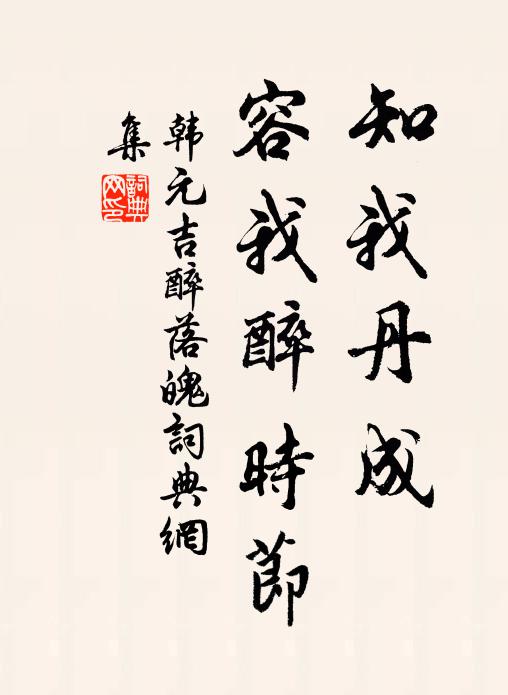 知我丹成
容我醉時節
韩元吉醉落魄詞典網
集
詞典
网印